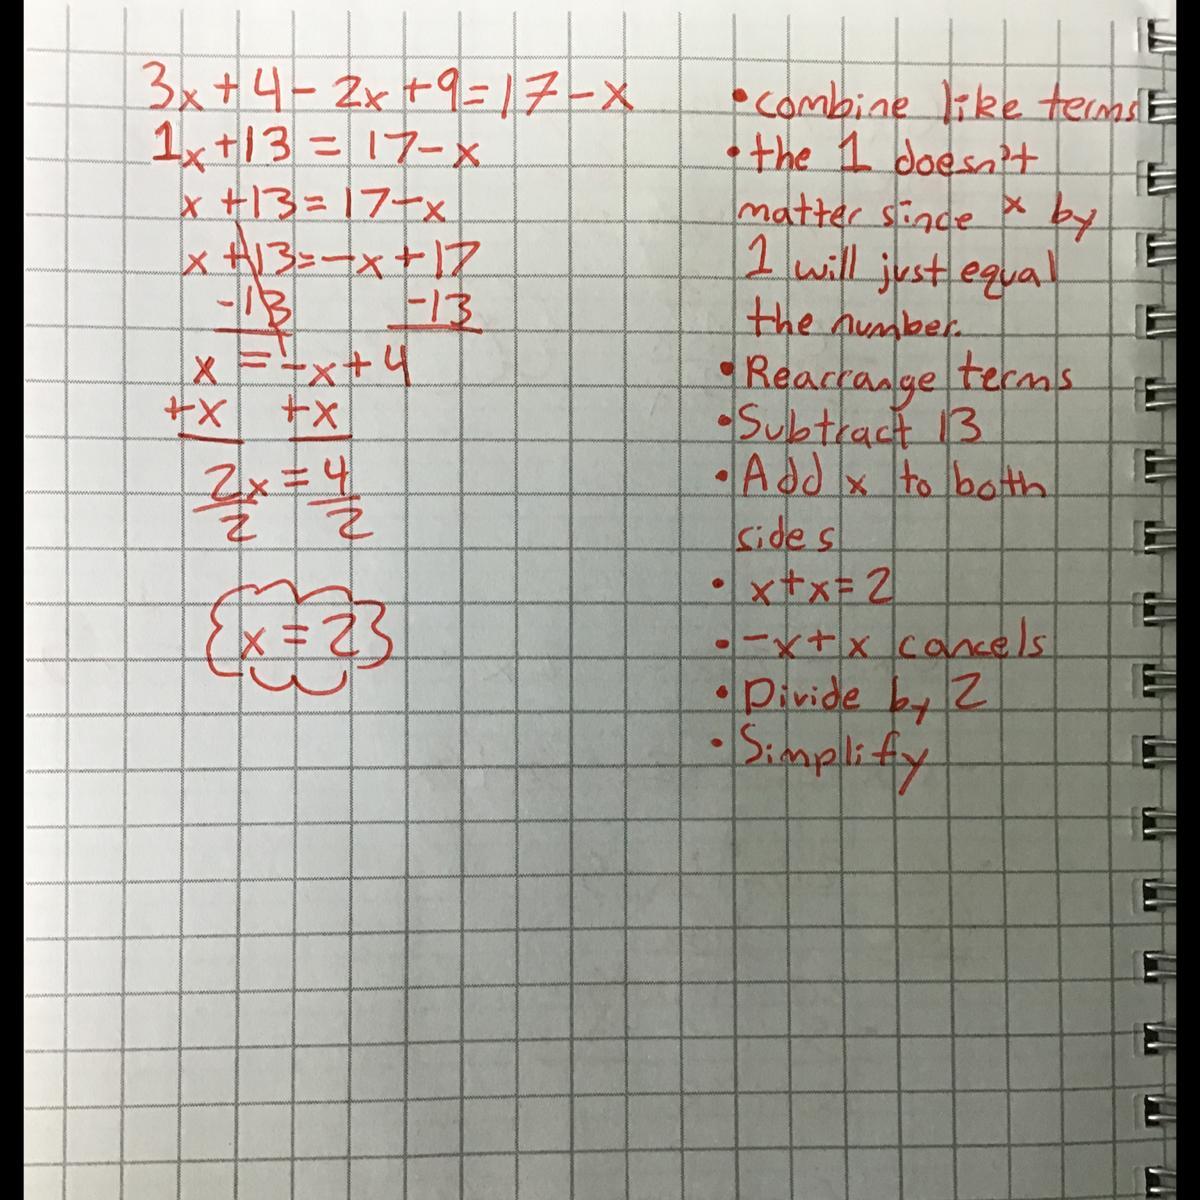 3x+4-2x+9=17-x
1x+13=17-x
x+13=17-x
x+13=-x+17
-13 -13
x=-x+4
+x +x
2x=4
2 2
x=2
•combine like terms
•the 1 doesn't
matter since x by
1 will just equal
the number.
•Rearrange terms
•Subtract 13
•Add x to both
sides
•x+x=2
•-x+x cancels
•Divide by 2
•Simplify